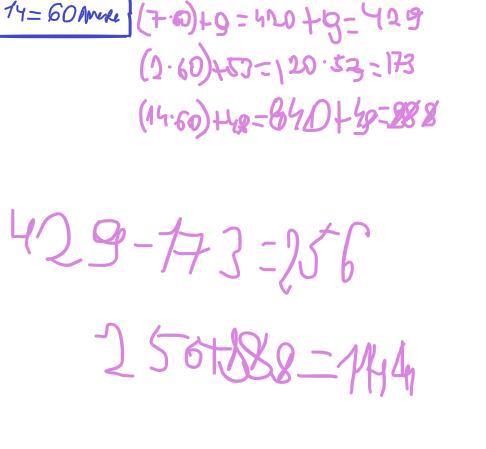 1ч = 60
(7·60)+9=420+9=429
(2·60)+53=120·53=173
(14·60)+48=840+48=888
429-173=256
256+888=1144